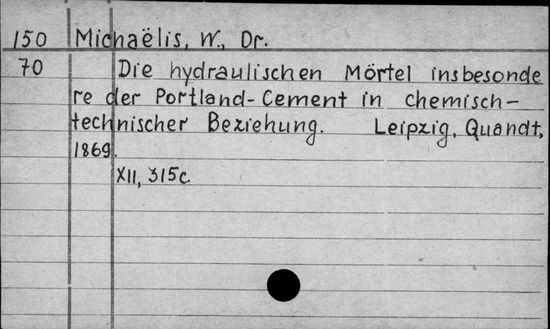 150 Michaëlis, W., Dr.
70 Die hydraulischen Mörtel insbesonde
re der Portland-Cement in chemisch-
technischer Beziehung. Leipzig, Quandt,
1869.
XII, 315c.